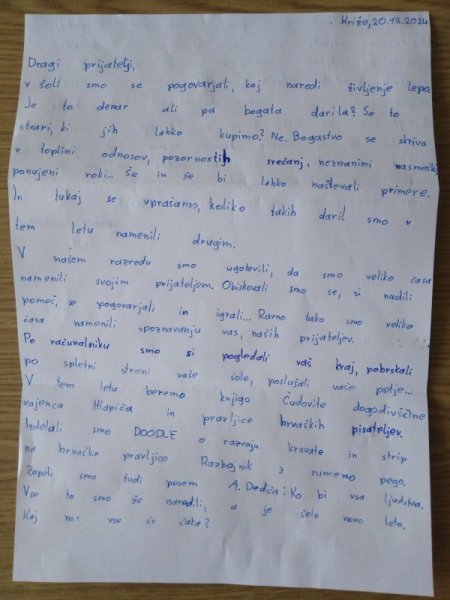 Križe, 20.12.2024
Dragi prijatelji,
v šoli smo se pogovarjali, kaj naredi življenje lepo.
Je to denar ali pa bogata darila? So to
stvari, ki jih lahko kupimo? Ne. Bogastvo se skriva
v toplini odnosov, pozornostih srečanj, neznanimi nasmeški,
ponujeni roki... Še in še bi lahko naštevali primere.
In tukaj se vprašamo, koliko takih daril smo v
tem letu namenili drugim.
V našem razredu smo ugotovili, da smo veliko časa
namenili svojim prijateljem. Obiskovali smo se, si nudili
pomoč, se pogovarjali in igrali... Ravno tako smo veliko
časa namenili spoznavanju vas, naših prijateljev.
Po računalniku smo si pogledali vaš kraj, pobrskali
po spletni strani vaše šole, poslušali vaše petje...
V tem letu beremo knjigo Čudovite dogodivščine
vajenca Hlapiča in pravljice hrvaških pisateljev.
Izdelali smo DOODLE o razvoju kravate in strip
na hrvaško pravljico Razbojnik z rumeno pego.
Zapeli smo tudi pesem A. Dedića: Ko bi vsa ljudstva.
Vse to smo že naredili, a je šele novo leto.
Kaj nas vse še čaka?